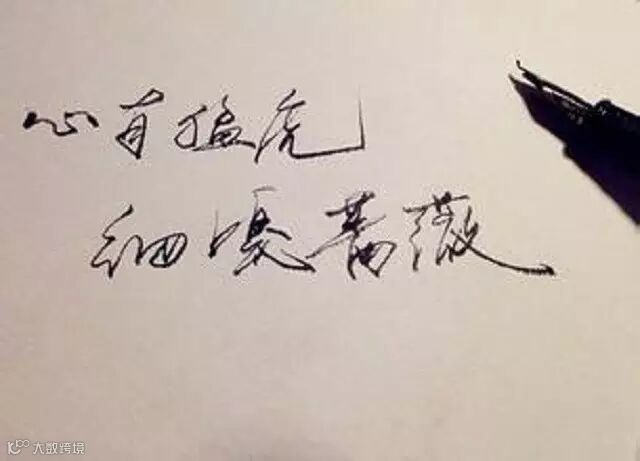 心有猛虎
细嗅蔷薇
大数跨境